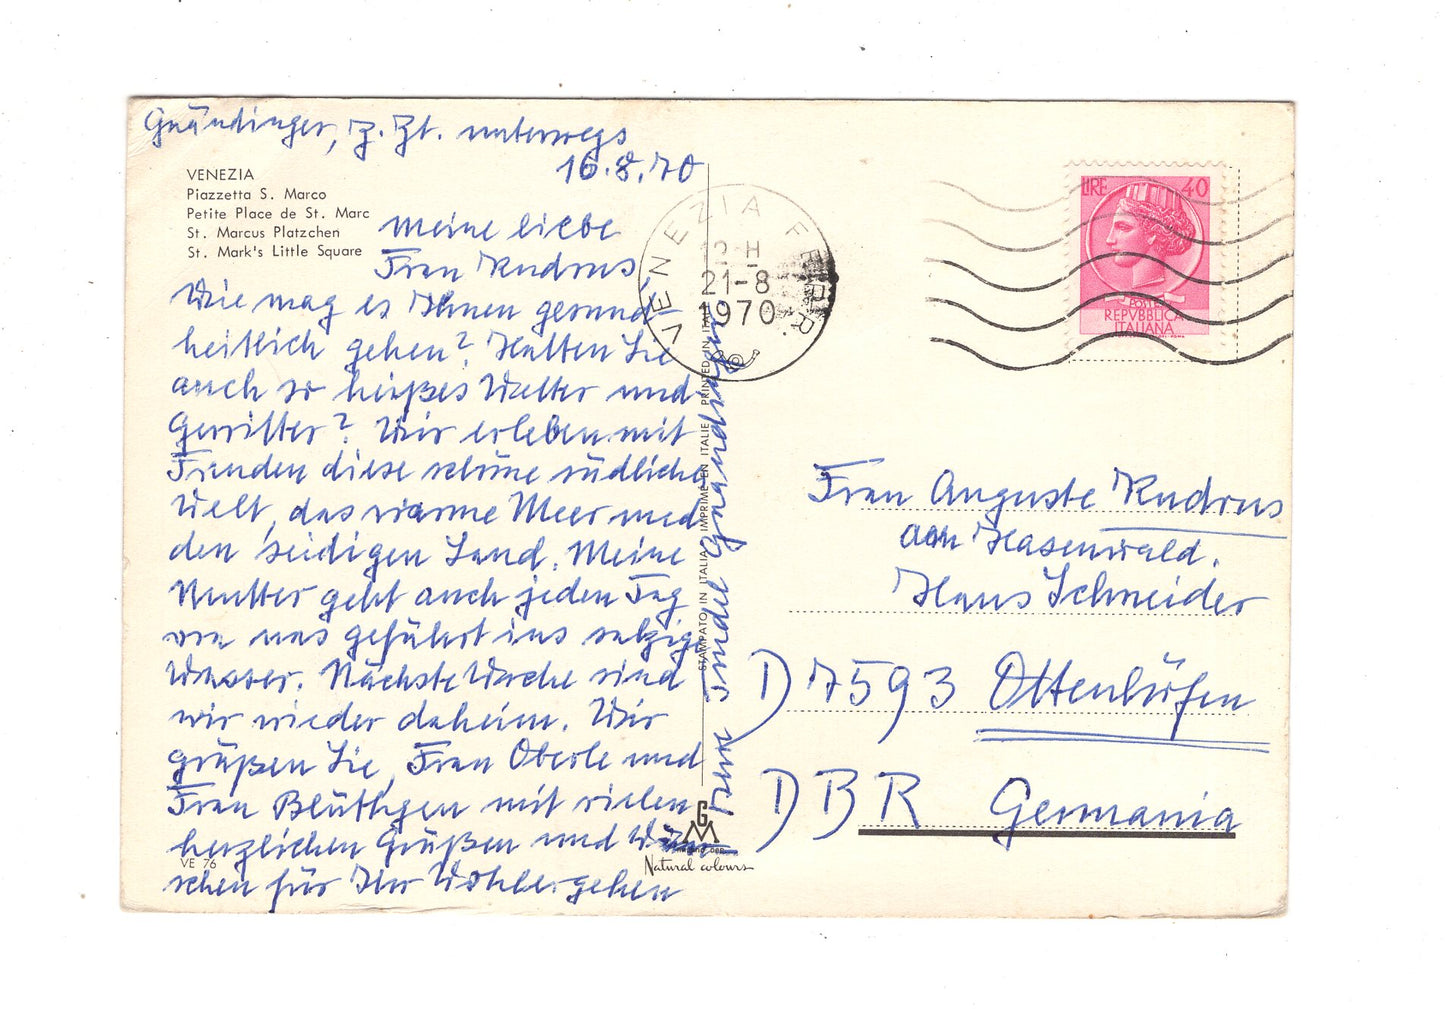 Gnändinger, z. Zt. unterwegs
16.8.70
VENEZIA
Piazzetta S. Marco
Petite Place de St. Marc
St. Marcus Platzchen
St. Mark's Little Square
Meine liebe
Frau Kudrus,
Wie mag es Ihnen gesund-
heitlich gehen? Hatten Sie
auch so heißes Wetter und
Gewitter? Wir erleben mit
Freuden diese schöne südliche
Welt, das warme Meer und
den seidigen Sand. Meine
Mutter geht auch jeden Tag
von uns geführt ins salzige
Wasser. Nächste Woche sind
wir wieder daheim. Wir
grüßen Sie, Frau Oberle und
Frau Blüthgen mit vielen
herzlichen Grüßen und Wün-
schen für Ihr Wohlergehen
Ihre Trudel Gnändinger
VE 76
STAMPATO IN ITALIA IMPRIMÉ EN ITALIE PRINTED IN ITALY
GM
Natural colours
VENEZIA FERR.
12 H
21-8
1970
LIRE 40
POSTE
REPVBBLICA
ITALIANA
Frau Auguste Kudrus
am Hasenwald.
Haus Schneider
D 7593 Ottenhöfen
DBR Germania